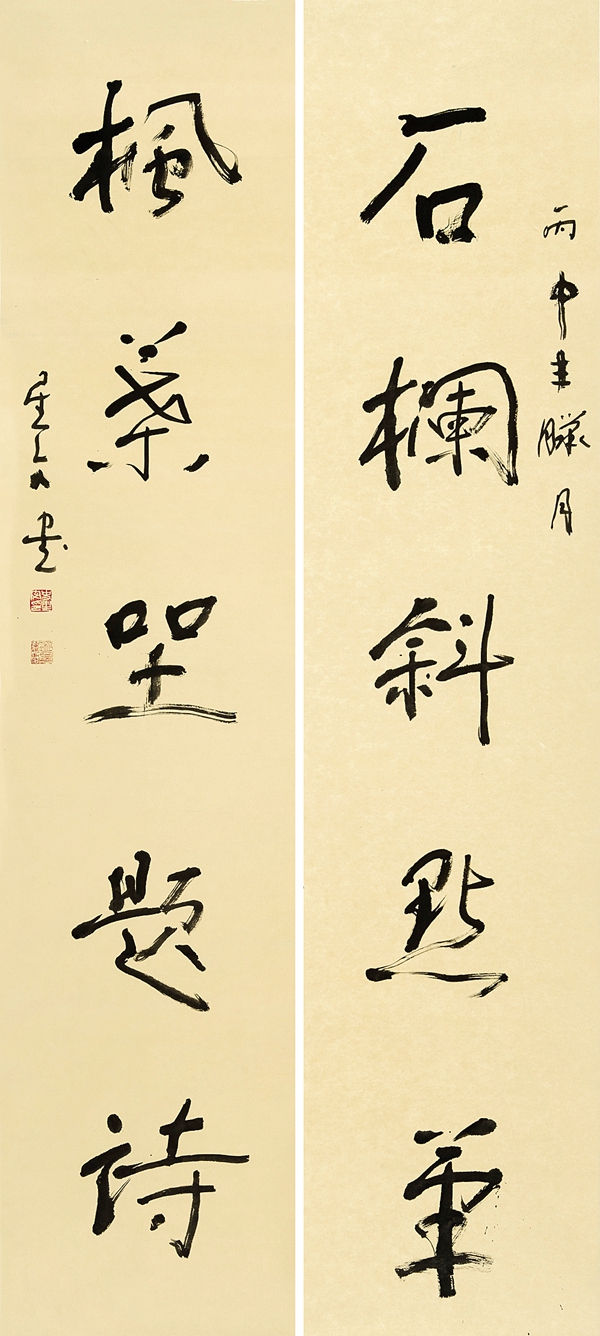 丙申年臘月
石欄斜點筆
楓葉坐題詩
書